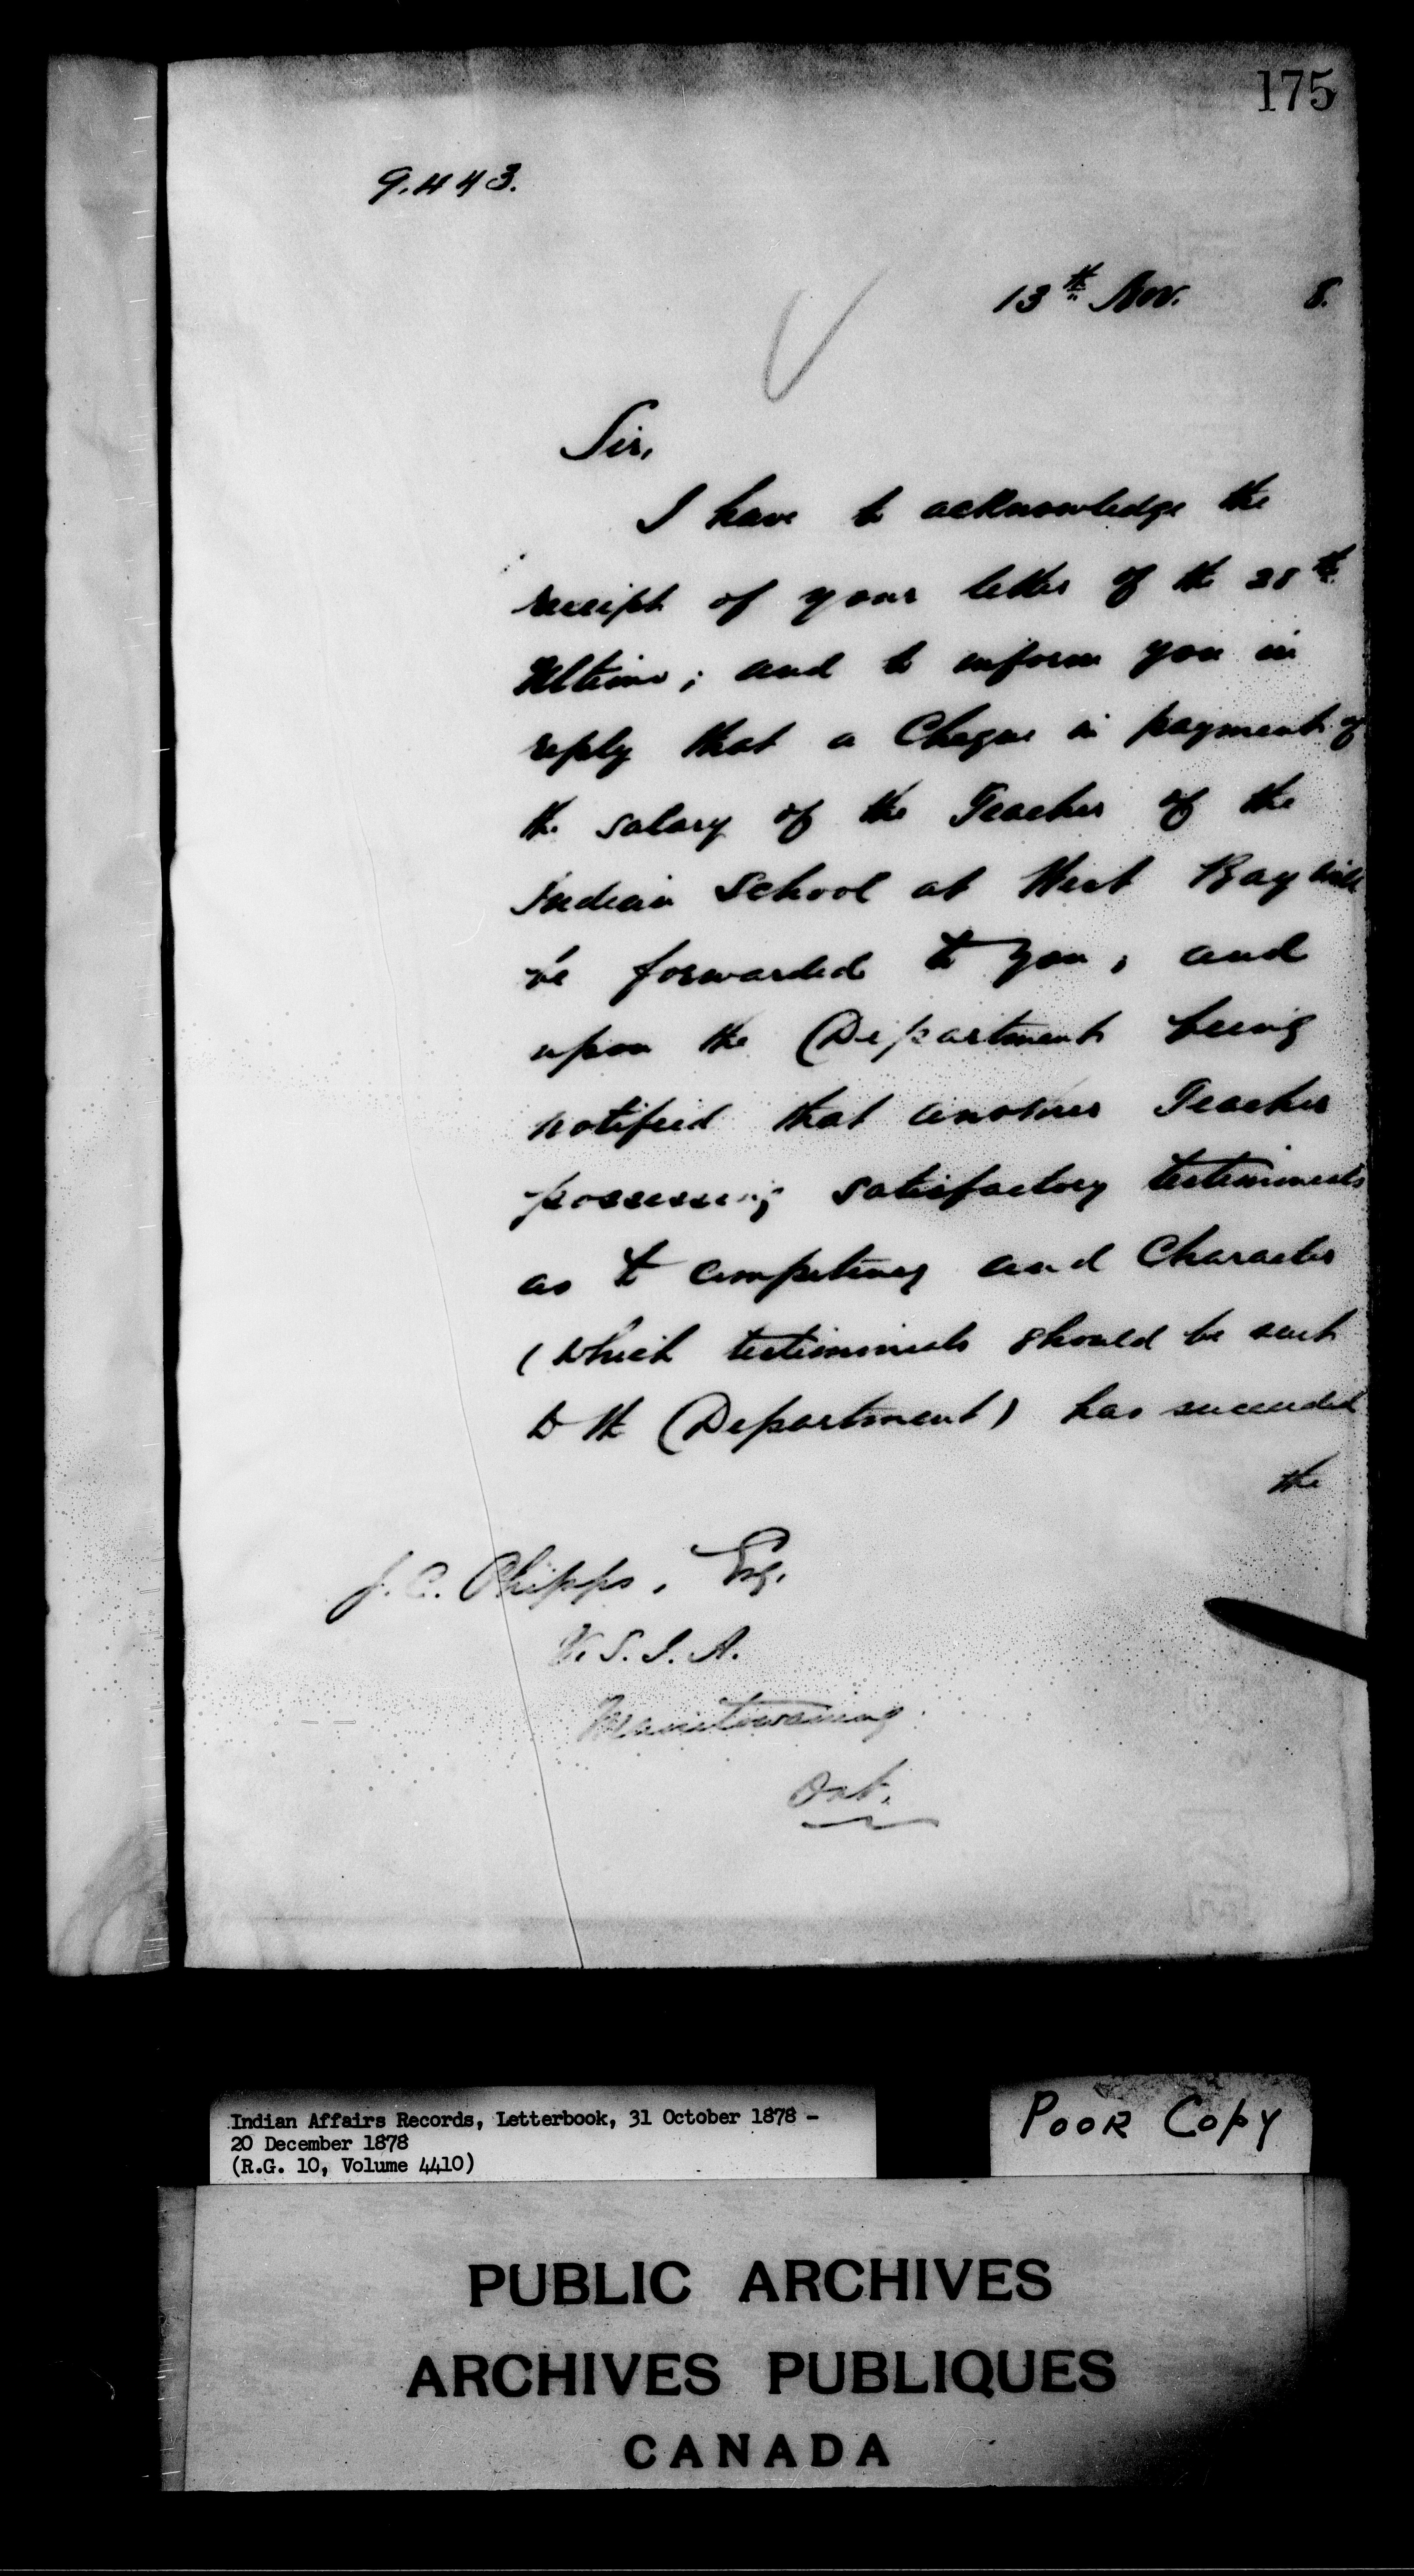 175
9.443.
13th Nov. 8.
Sir,
I have to acknowledge the
receipt of your letter of the 28th
Ultimo; and to inform you in
reply that a Cheque in payment of
the salary of the Teacher of the
Indian School at West Bay will
be forwarded to you, and
upon the Department being
notified that another Teacher
possessing satisfactory testimonials
as to competency and Character
(which testimonials should be sent
to the Department) has succeeded
the
J. C. Phipps, Esq.
V. S. I. A.
Manitowaning
Ont.
Indian Affairs Records, Letterbook, 31 October 1878 -
20 December 1878
(R.G. 10, Volume 4410)
POOR COPY
PUBLIC ARCHIVES
ARCHIVES PUBLIQUES
CANADA